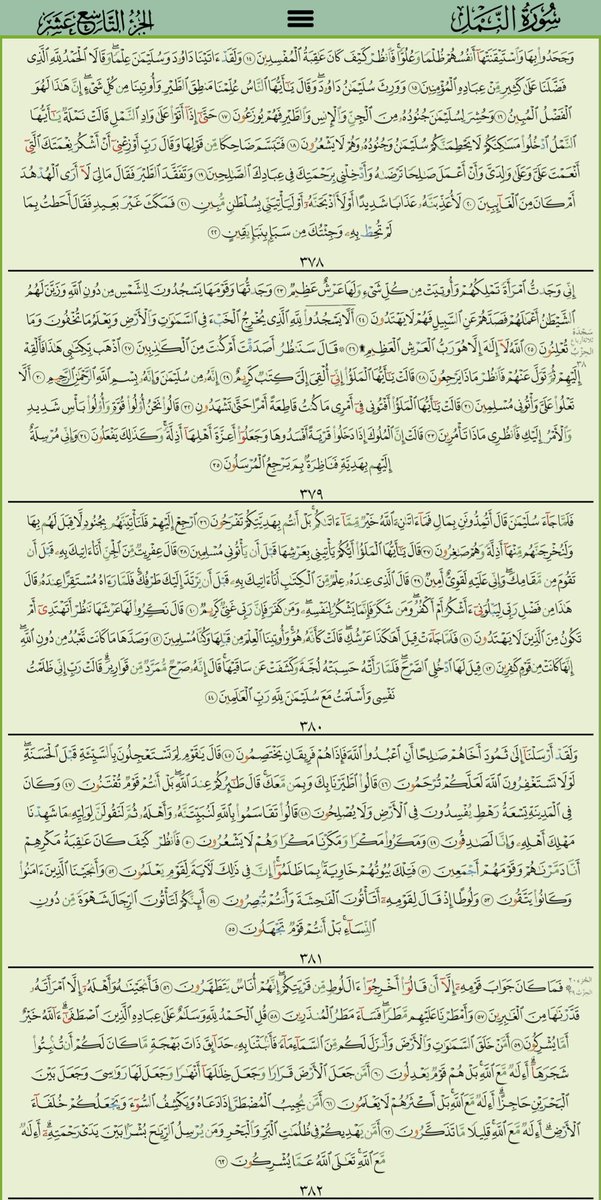 سُورَةُ النَّمْلِ
الجُزْءُ التَّاسِعَ عَشَرَ
وَجَحَدُوا۟ بِهَا وَٱسْتَيْقَنَتْهَآ أَنفُسُهُمْ ظُلْمًا وَعُلُوًّا ۚ فَٱنظُرْ كَيْفَ كَانَ عَٰقِبَةُ ٱلْمُفْسِدِينَ ١٤ وَلَقَدْ ءَاتَيْنَا دَاوُۥدَ وَسُلَيْمَٰنَ عِلْمًا ۖ وَقَالَا ٱلْحَمْدُ لِلَّهِ ٱلَّذِى
فَضَّلَنَا عَلَىٰ كَثِيرٍ مِّنْ عِبَادِهِ ٱلْمُؤْمِنِينَ ١٥ وَوَرِثَ سُلَيْمَٰنُ دَاوُۥدَ ۖ وَقَالَ يَٰٓأَيُّهَا ٱلنَّاسُ عُلِّمْنَا مَنطِقَ ٱلطَّيْرِ وَأُوتِينَا مِن كُلِّ شَىْءٍ ۖ إِنَّ هَٰذَا لَهُوَ
ٱلْفَضْلُ ٱلْمُبِينُ ١٦ وَحُشِرَ لِسُلَيْمَٰنَ جُنُودُهُۥ مِنَ ٱلْجِنِّ وَٱلْإِنسِ وَٱلطَّيْرِ فَهُمْ يُوزَعُونَ ١٧ حَتَّىٰٓ إِذَآ أَتَوْا۟ عَلَىٰ وَادِ ٱلنَّمْلِ قَالَتْ نَمْلَةٌ يَٰٓأَيُّهَا
ٱلنَّمْلُ ٱدْخُلُوا۟ مَسَٰكِنَكُمْ لَا يَحْطِمَنَّكُمْ سُلَيْمَٰنُ وَجُنُودُهُۥ وَهُمْ لَا يَشْعُرُونَ ١٨ فَتَبَسَّمَ ضَاحِكًا مِّن قَوْلِهَا وَقَالَ رَبِّ أَوْزِعْنِىٓ أَنْ أَشْكُرَ نِعْمَتَكَ ٱلَّتِىٓ
أَنْعَمْتَ عَلَىَّ وَعَلَىٰ وَٰلِدَىَّ وَأَنْ أَعْمَلَ صَٰلِحًا تَرْضَىٰهُ وَأَدْخِلْنِى بِرَحْمَتِكَ فِى عِبَادِكَ ٱلصَّٰلِحِينَ ١٩ وَتَفَقَّدَ ٱلطَّيْرَ فَقَالَ مَالِىَ لَآ أَرَى ٱلْهُدْهُدَ
أَمْ كَانَ مِنَ ٱلْغَآئِبِينَ ٢٠ لَأُعَذِّبَنَّهُۥ عَذَابًا شَدِيدًا أَوْ لَأَا۟ذْبَحَنَّهُۥٓ أَوْ لَيَأْتِيَنِّى بِسُلْطَٰنٍ مُّبِينٍ ٢١ فَمَكَثَ غَيْرَ بَعِيدٍ فَقَالَ أَحَطتُ بِمَا
لَمْ تُحِطْ بِهِۦ وَجِئْتُكَ مِن سَبَإٍۭ بِنَبَإٍ يَقِينٍ ٢٢
٣٧٨
إِنِّى وَجَدتُّ ٱمْرَأَةً تَمْلِكُهُمْ وَأُوتِيَتْ مِن كُلِّ شَىْءٍ وَلَهَا عَرْشٌ عَظِيمٌ ٢٣ وَجَدتُّهَا وَقَوْمَهَا يَسْجُدُونَ لِلشَّمْسِ مِن دُونِ ٱللَّهِ وَزَيَّنَ لَهُمُ
ٱلشَّيْطَٰنُ أَعْمَٰلَهُمْ فَصَدَّهُمْ عَنِ ٱلسَّبِيلِ فَهُمْ لَا يَهْتَدُونَ ٢٤ أَلَّا يَسْجُدُوا۟ لِلَّهِ ٱلَّذِى يُخْرِجُ ٱلْخَبْءَ فِى ٱلسَّمَٰوَٰتِ وَٱلْأَرْضِ وَيَعْلَمُ مَا تُخْفُونَ وَمَا
تُعْلِنُونَ ٢٥ ٱللَّهُ لَآ إِلَٰهَ إِلَّا هُوَ رَبُّ ٱلْعَرْشِ ٱلْعَظِيمِ ۩ ٢٦ ۞ قَالَ سَنَنظُرُ أَصَدَقْتَ أَمْ كُنتَ مِنَ ٱلْكَٰذِبِينَ ٢٧ ٱذْهَب بِّكِتَٰبِى هَٰذَا فَأَلْقِهْ
إِلَيْهِمْ ثُمَّ تَوَلَّ عَنْهُمْ فَٱنظُرْ مَاذَا يَرْجِعُونَ ٢٨ قَالَتْ يَٰٓأَيُّهَا ٱلْمَلَؤُا۟ إِنِّىٓ أُلْقِىَ إِلَىَّ كِتَٰبٌ كَرِيمٌ ٢٩ إِنَّهُۥ مِن سُلَيْمَٰنَ وَإِنَّهُۥ بِسْمِ ٱللَّهِ ٱلرَّحْمَٰنِ ٱلرَّحِيمِ ٣٠ أَلَّا
تَعْلُوا۟ عَلَىَّ وَأْتُونِى مُسْلِمِينَ ٣١ قَالَتْ يَٰٓأَيُّهَا ٱلْمَلَؤُا۟ أَفْتُونِى فِىٓ أَمْرِى مَا كُنتُ قَاطِعَةً أَمْرًا حَتَّىٰ تَشْهَدُونِ ٣٢ قَالُوا۟ نَحْنُ أُو۟لُوا۟ قُوَّةٍ وَأُو۟لُوا۟ بَأْسٍ شَدِيدٍ
وَٱلْأَمْرُ إِلَيْكِ فَٱنظُرِى مَاذَا تَأْمُرِينَ ٣٣ قَالَتْ إِنَّ ٱلْمُلُوكَ إِذَا دَخَلُوا۟ قَرْيَةً أَفْسَدُوهَا وَجَعَلُوٓا۟ أَعِزَّةَ أَهْلِهَآ أَذِلَّةً ۖ وَكَذَٰلِكَ يَفْعَلُونَ ٣٤ وَإِنِّى مُرْسِلَةٌ
إِلَيْهِم بِهَدِيَّةٍ فَنَاظِرَةٌۢ بِمَ يَرْجِعُ ٱلْمُرْسَلُونَ ٣٥
٣٧٩
فَلَمَّا جَآءَ سُلَيْمَٰنَ قَالَ أَتُمِدُّونَنِ بِمَالٍ فَمَآ ءَاتَىٰنِۦَ ٱللَّهُ خَيْرٌ مِّمَّآ ءَاتَىٰكُم بَلْ أَنتُم بِهَدِيَّتِكُمْ تَفْرَحُونَ ٣٦ ٱرْجِعْ إِلَيْهِمْ فَلَنَأْتِيَنَّهُم بِجُنُودٍ لَّا قِبَلَ لَهُم بِهَا
وَلَنُخْرِجَنَّهُم مِّنْهَآ أَذِلَّةً وَهُمْ صَٰغِرُونَ ٣٧ قَالَ يَٰٓأَيُّهَا ٱلْمَلَؤُا۟ أَيُّكُمْ يَأْتِينِى بِعَرْشِهَا قَبْلَ أَن يَأْتُونِى مُسْلِمِينَ ٣٨ قَالَ عِفْرِيتٌ مِّنَ ٱلْجِنِّ أَنَا۠ ءَاتِيكَ بِهِۦ قَبْلَ أَن
تَقُومَ مِن مَّقَامِكَ ۖ وَإِنِّى عَلَيْهِ لَقَوِىٌّ أَمِينٌ ٣٩ قَالَ ٱلَّذِى عِندَهُۥ عِلْمٌ مِّنَ ٱلْكِتَٰبِ أَنَا۠ ءَاتِيكَ بِهِۦ قَبْلَ أَن يَرْتَدَّ إِلَيْكَ طَرْفُكَ ۚ فَلَمَّا رَءَاهُ مُسْتَقِرًّا عِندَهُۥ قَالَ
هَٰذَا مِن فَضْلِ رَبِّى لِيَبْلُوَنِىٓ ءَأَشْكُرُ أَمْ أَكْفُرُ ۖ وَمَن شَكَرَ فَإِنَّمَا يَشْكُرُ لِنَفْسِهِۦ ۖ وَمَن كَفَرَ فَإِنَّ رَبِّى غَنِىٌّ كَرِيمٌ ٤٠ قَالَ نَكِّرُوا۟ لَهَا عَرْشَهَا نَنظُرْ أَتَهْتَدِىٓ أَمْ
تَكُونُ مِنَ ٱلَّذِينَ لَا يَهْتَدُونَ ٤١ فَلَمَّا جَآءَتْ قِيلَ أَهَٰكَذَا عَرْشُكِ ۖ قَالَتْ كَأَنَّهُۥ هُوَ ۚ وَأُوتِينَا ٱلْعِلْمَ مِن قَبْلِهَا وَكُنَّا مُسْلِمِينَ ٤٢ وَصَدَّهَا مَا كَانَت تَّعْبُدُ مِن دُونِ ٱللَّهِ ۖ
إِنَّهَا كَانَتْ مِن قَوْمٍ كَٰفِرِينَ ٤٣ قِيلَ لَهَا ٱدْخُلِى ٱلصَّرْحَ ۖ فَلَمَّا رَأَتْهُ حَسِبَتْهُ لُجَّةً وَكَشَفَتْ عَن سَاقَيْهَا ۚ قَالَ إِنَّهُۥ صَرْحٌ مُّمَرَّدٌ مِّن قَوَارِيرَ ۗ قَالَتْ رَبِّ إِنِّى ظَلَمْتُ
نَفْسِى وَأَسْلَمْتُ مَعَ سُلَيْمَٰنَ لِلَّهِ رَبِّ ٱلْعَٰلَمِينَ ٤٤
٣٨٠
وَلَقَدْ أَرْسَلْنَآ إِلَىٰ ثَمُودَ أَخَاهُمْ صَٰلِحًا أَنِ ٱعْبُدُوا۟ ٱللَّهَ فَإِذَا هُمْ فَرِيقَانِ يَخْتَصِمُونَ ٤٥ قَالَ يَٰقَوْمِ لِمَ تَسْتَعْجِلُونَ بِٱلسَّيِّئَةِ قَبْلَ ٱلْحَسَنَةِ ۖ
لَوْلَا تَسْتَغْفِرُونَ ٱللَّهَ لَعَلَّكُمْ تُرْحَمُونَ ٤٦ قَالُوا۟ ٱطَّيَّرْنَا بِكَ وَبِمَن مَّعَكَ ۚ قَالَ طَٰٓئِرُكُمْ عِندَ ٱللَّهِ ۖ بَلْ أَنتُمْ قَوْمٌ تُفْتَنُونَ ٤٧ وَكَانَ
فِى ٱلْمَدِينَةِ تِسْعَةُ رَهْطٍ يُفْسِدُونَ فِى ٱلْأَرْضِ وَلَا يُصْلِحُونَ ٤٨ قَالُوا۟ تَقَاسَمُوا۟ بِٱللَّهِ لَنُبَيِّتَنَّهُۥ وَأَهْلَهُۥ ثُمَّ لَنَقُولَنَّ لِوَلِيِّهِۦ مَا شَهِدْنَا
مَهْلِكَ أَهْلِهِۦ وَإِنَّا لَصَٰدِقُونَ ٤٩ وَمَكَرُوا۟ مَكْرًا وَمَكَرْنَا مَكْرًا وَهُمْ لَا يَشْعُرُونَ ٥٠ فَٱنظُرْ كَيْفَ كَانَ عَٰقِبَةُ مَكْرِهِمْ
أَنَّا دَمَّرْنَٰهُمْ وَقَوْمَهُمْ أَجْمَعِينَ ٥١ فَتِلْكَ بُيُوتُهُمْ خَاوِيَةًۢ بِمَا ظَلَمُوٓا۟ ۗ إِنَّ فِى ذَٰلِكَ لَءَايَةً لِّقَوْمٍ يَعْلَمُونَ ٥٢ وَأَنجَيْنَا ٱلَّذِينَ ءَامَنُوا۟
وَكَانُوا۟ يَتَّقُونَ ٥٣ وَلُوطًا إِذْ قَالَ لِقَوْمِهِۦٓ أَتَأْتُونَ ٱلْفَٰحِشَةَ وَأَنتُمْ تُبْصِرُونَ ٥٤ أَئِنَّكُمْ لَتَأْتُونَ ٱلرِّجَالَ شَهْوَةً مِّن دُونِ
ٱلنِّسَآءِ ۚ بَلْ أَنتُمْ قَوْمٌ تَجْهَلُونَ ٥٥
٣٨١
۞ فَمَا كَانَ جَوَابَ قَوْمِهِۦٓ إِلَّآ أَن قَالُوٓا۟ أَخْرِجُوٓا۟ ءَالَ لُوطٍ مِّن قَرْيَتِكُمْ ۖ إِنَّهُمْ أُنَاسٌ يَتَطَهَّرُونَ ٥٦ فَأَنجَيْنَٰهُ وَأَهْلَهُۥٓ إِلَّا ٱمْرَأَتَهُۥ
قَدَّرْنَٰهَا مِنَ ٱلْغَٰبِرِينَ ٥٧ وَأَمْطَرْنَا عَلَيْهِم مَّطَرًا ۖ فَسَآءَ مَطَرُ ٱلْمُنذَرِينَ ٥٨ قُلِ ٱلْحَمْدُ لِلَّهِ وَسَلَٰمٌ عَلَىٰ عِبَادِهِ ٱلَّذِينَ ٱصْطَفَىٰٓ ۗ ءَآللَّهُ خَيْرٌ
أَمَّا يُشْرِكُونَ ٥٩ أَمَّنْ خَلَقَ ٱلسَّمَٰوَٰتِ وَٱلْأَرْضَ وَأَنزَلَ لَكُم مِّنَ ٱلسَّمَآءِ مَآءً فَأَنۢبَتْنَا بِهِۦ حَدَآئِقَ ذَاتَ بَهْجَةٍ مَّا كَانَ لَكُمْ أَن تُنۢبِتُوا۟
شَجَرَهَآ ۗ أَءِلَٰهٌ مَّعَ ٱللَّهِ ۚ بَلْ هُمْ قَوْمٌ يَعْدِلُونَ ٦٠ أَمَّن جَعَلَ ٱلْأَرْضَ قَرَارًا وَجَعَلَ خِلَٰلَهَآ أَنْهَٰرًا وَجَعَلَ لَهَا رَوَٰسِىَ وَجَعَلَ بَيْنَ
ٱلْبَحْرَيْنِ حَاجِزًا ۗ أَءِلَٰهٌ مَّعَ ٱللَّهِ ۚ بَلْ أَكْثَرُهُمْ لَا يَعْلَمُونَ ٦١ أَمَّن يُجِيبُ ٱلْمُضْطَرَّ إِذَا دَعَاهُ وَيَكْشِفُ ٱلسُّوٓءَ وَيَجْعَلُكُمْ خُلَفَآءَ
ٱلْأَرْضِ ۗ أَءِلَٰهٌ مَّعَ ٱللَّهِ ۚ قَلِيلًا مَّا تَذَكَّرُونَ ٦٢ أَمَّن يَهْدِيكُمْ فِى ظُلُمَٰتِ ٱلْبَرِّ وَٱلْبَحْرِ وَمَن يُرْسِلُ ٱلرِّيَٰحَ بُشْرًۢا بَيْنَ يَدَىْ رَحْمَتِهِۦٓ ۗ أَءِلَٰهٌ
مَّعَ ٱللَّهِ ۚ تَعَٰلَى ٱللَّهُ عَمَّا يُشْرِكُونَ ٦٣
٣٨٢